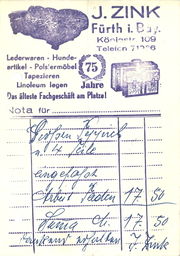 J. ZINK
Fürth i. Bay.
Königstr. 109
Telefon 71286
Lederwaren - Hunde-
artikel - Polstermöbel
Tapezieren
Linoleum legen
75 Jahre
Das älteste Fachgeschäft am Platze!
Nota für
Teppich
eingefasst
Arbeit Faden 17.50
Summa 17.50
dankend erhalten J. Zink